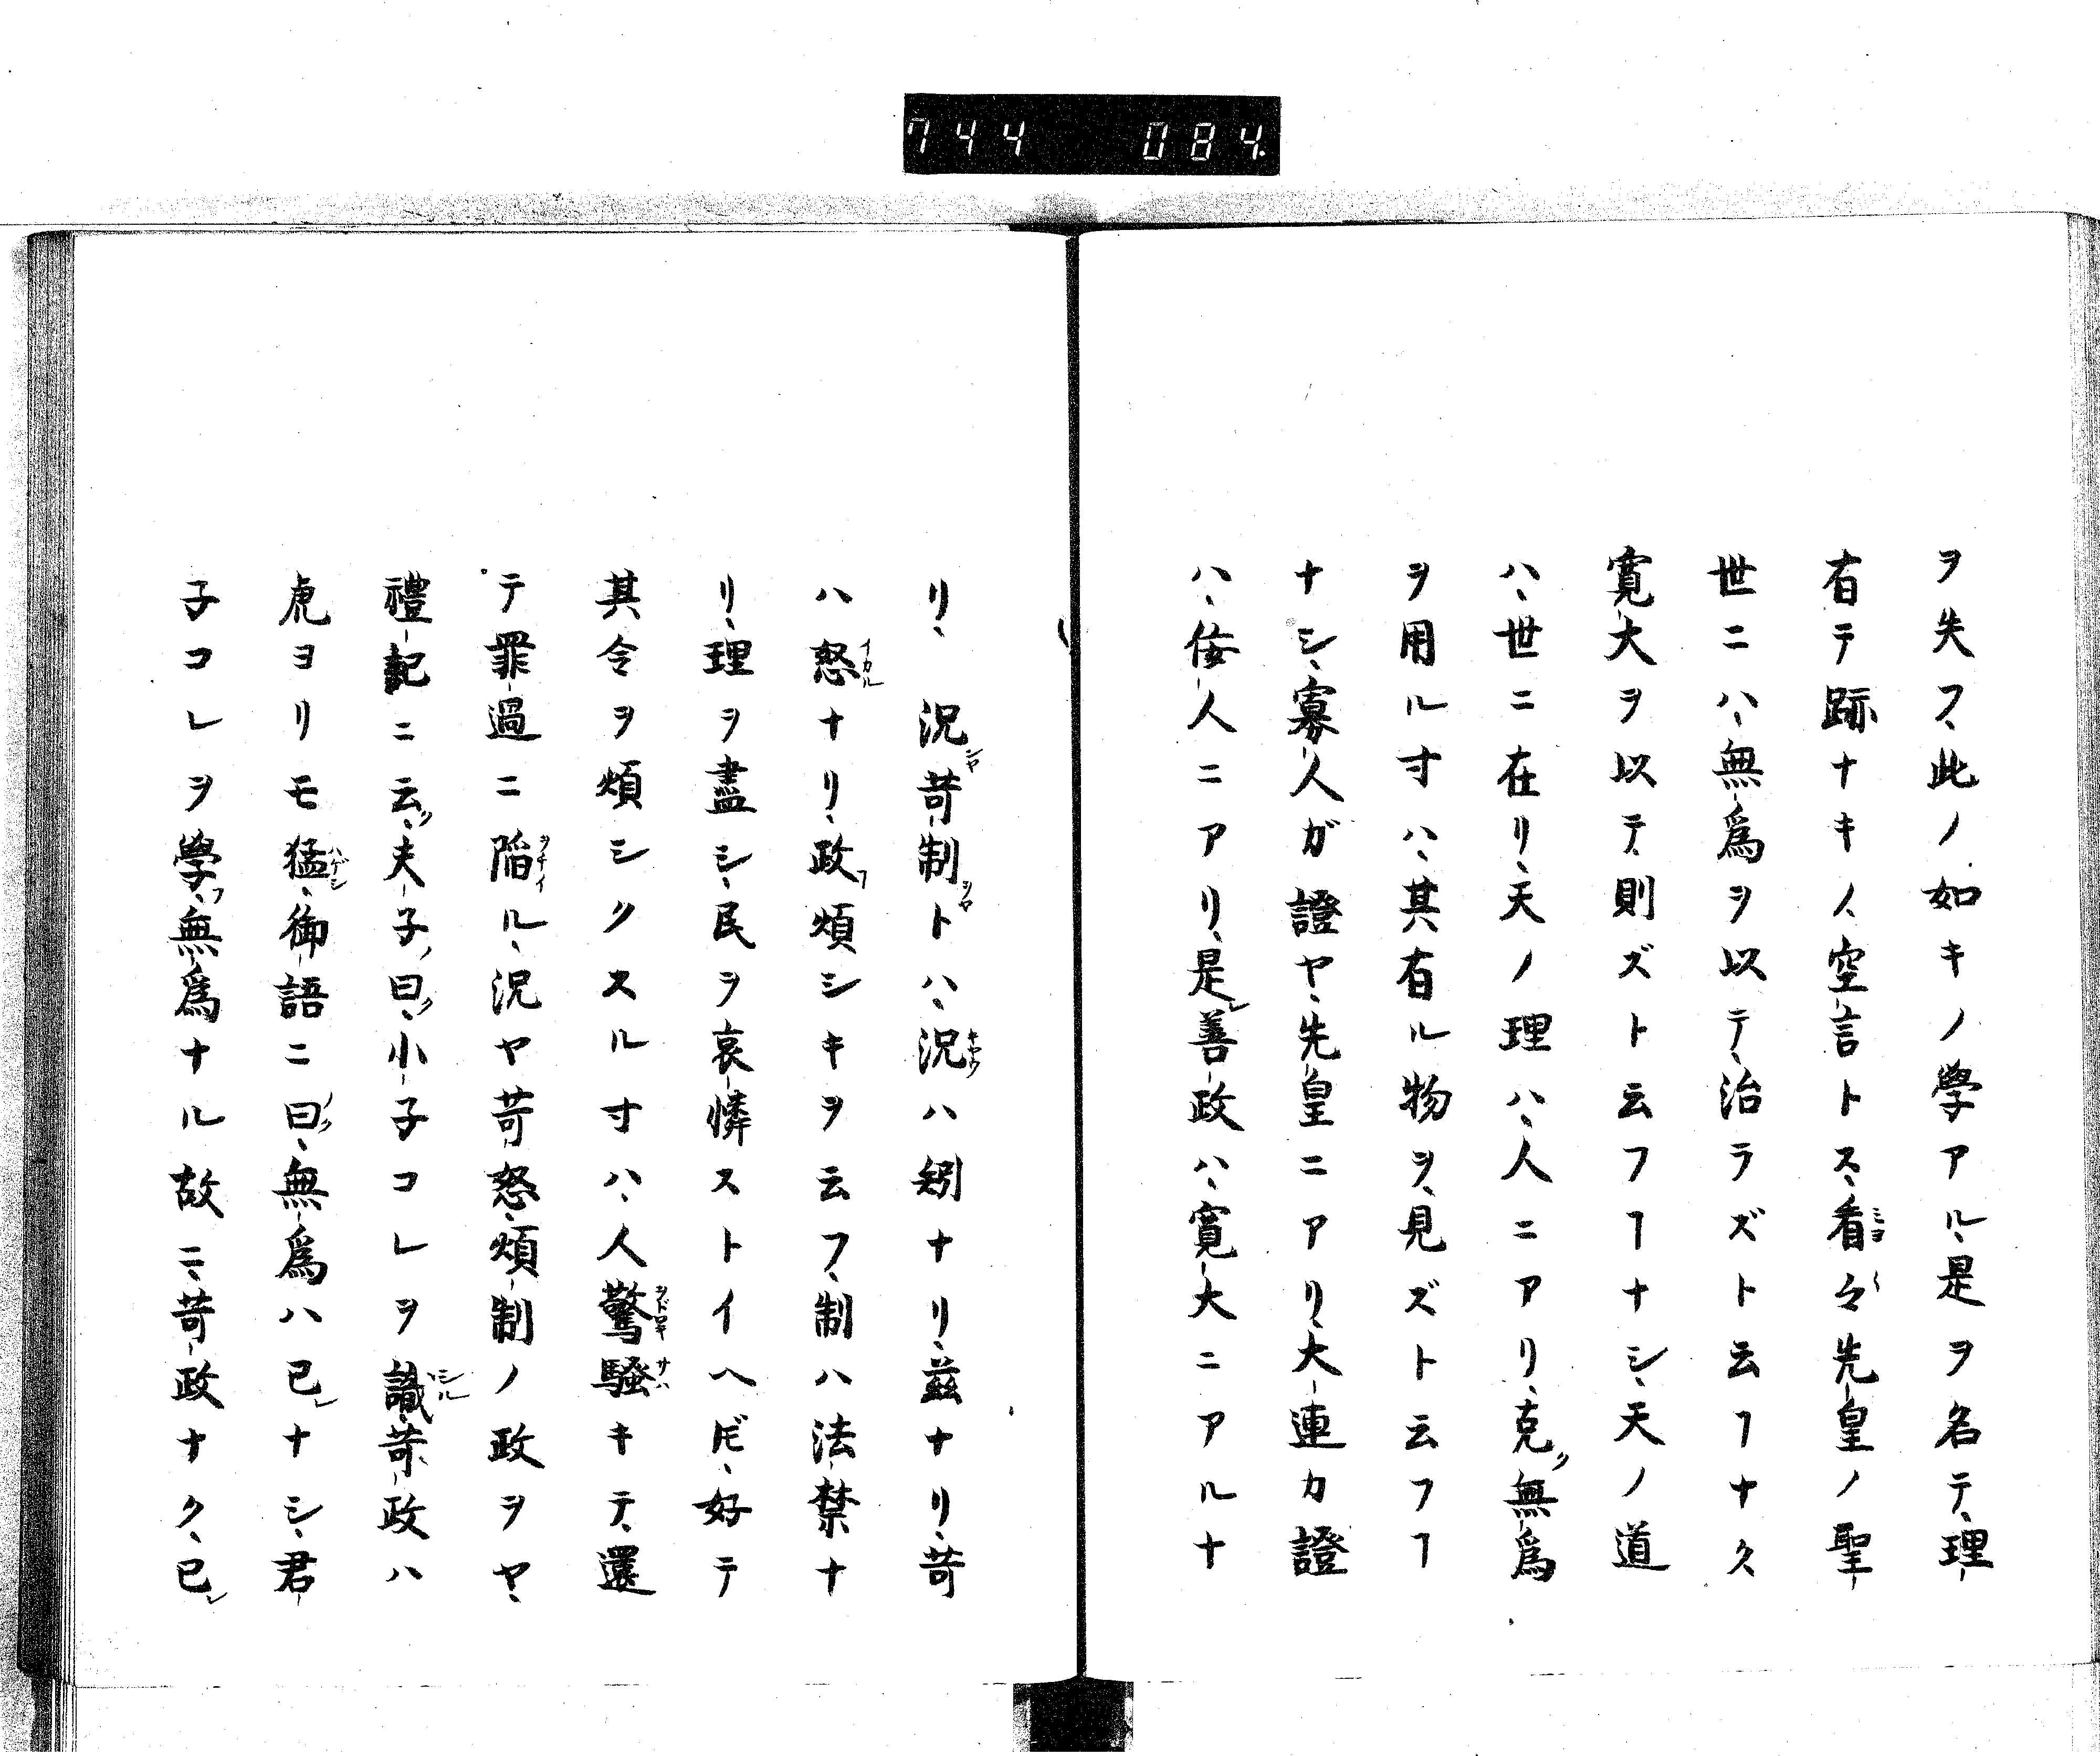 744 084
ヲ失フ、此ノ如キノ學アル、是ヲ名テ、理
有テ跡ナキノ、空言トス、看々先皇ノ聖
世ニハ、無爲ヲ以テ、治ラズト云フヿナク
寛大ヲ以テ、則ズト云フヿナシ、天ノ道
ハ、世ニ在リ、天ノ理ハ、人ニアリ、克無爲
ヲ用ル寸ハ、其有ル物ヲ、見ズト云フヿ
ナシ、寡人ガ證ヤ、先皇ニアリ、大連カ證
ハ、佞人ニアリ、是善政ハ、寛大ニアルナ
リ、況苛制トハ、況ハ矧ナリ、茲ナリ、苛
ハ怒ナリ、政煩シキヲ云フ、制ハ法禁ナ
リ、理ヲ盡シ、民ヲ哀憐ストイヘドモ、好テ
其令ヲ煩シクスル寸ハ、人驚騷キテ、還
テ罪過ニ陷ル、況ヤ苛怒、煩制ノ政ヲヤ、
禮記ニ云、夫子曰、小子コレヲ識、苛政ハ
虎ヨリモ猛、御語ニ曰、無爲ハ已ナシ、君
子コレヲ學、無爲ナル故ニ、苛政ナク、已